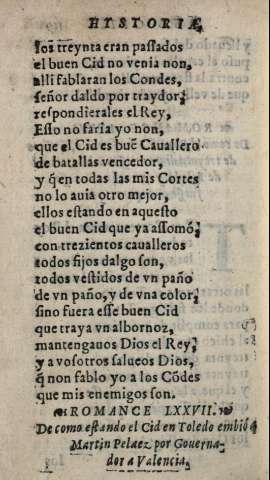 HYSTORIA
los treynta eran passados
el buen Cid no venia non,
alli fablaran los Condes,
señor daldo por traydor:
respondierales el Rey,
Esso no faria yo non,
que el Cid es buẽ Cauallero
de batallas vencedor,
y q̃ en todas las mis Cortes
no lo auia otro mejor,
ellos estando en aquesto
el buen Cid que ya assomó:
con trezientos caualleros
todos fijos dalgo son,
todos vestidos de vn paño
de vn paño, y de vna color:
sino fuera esse buen Cid
que traya vn albornoz,
mantengauos Dios el Rey:
y a vosotros salueos Dios,
q̃ non fablo yo a los Cõdes
que mis enemigos son.
ROMANCE LXXVII.
De como estando el Cid en Toledo embió a
Martin Pelaez por Gouerna-
dor a Valencia,